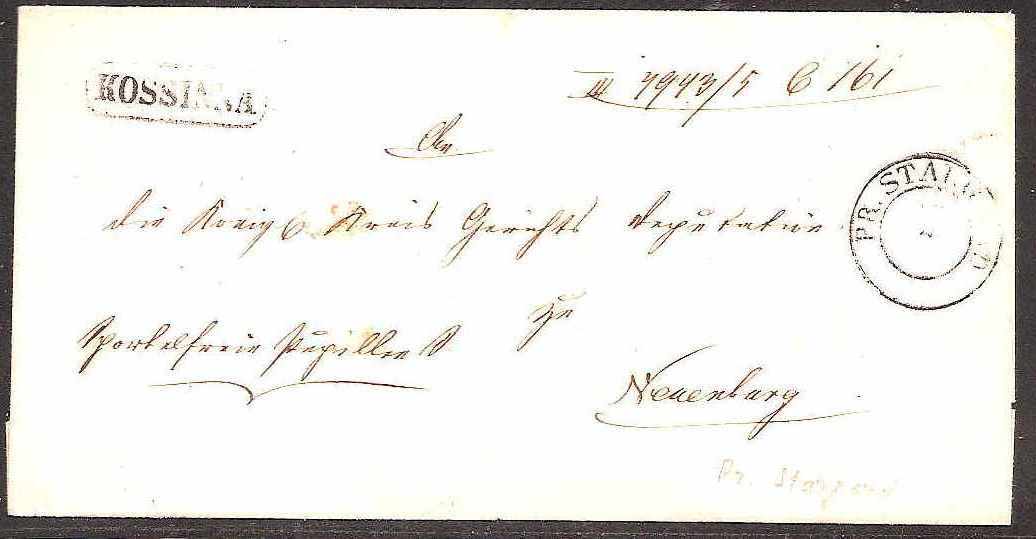 KOSSINNA
III 7943/5 C 161
An
die König Kreis Gerichts Deputation
zu
Sportelfreie Pupillen S
Neuenburg
PR. STARGARD
Pr. Stargard